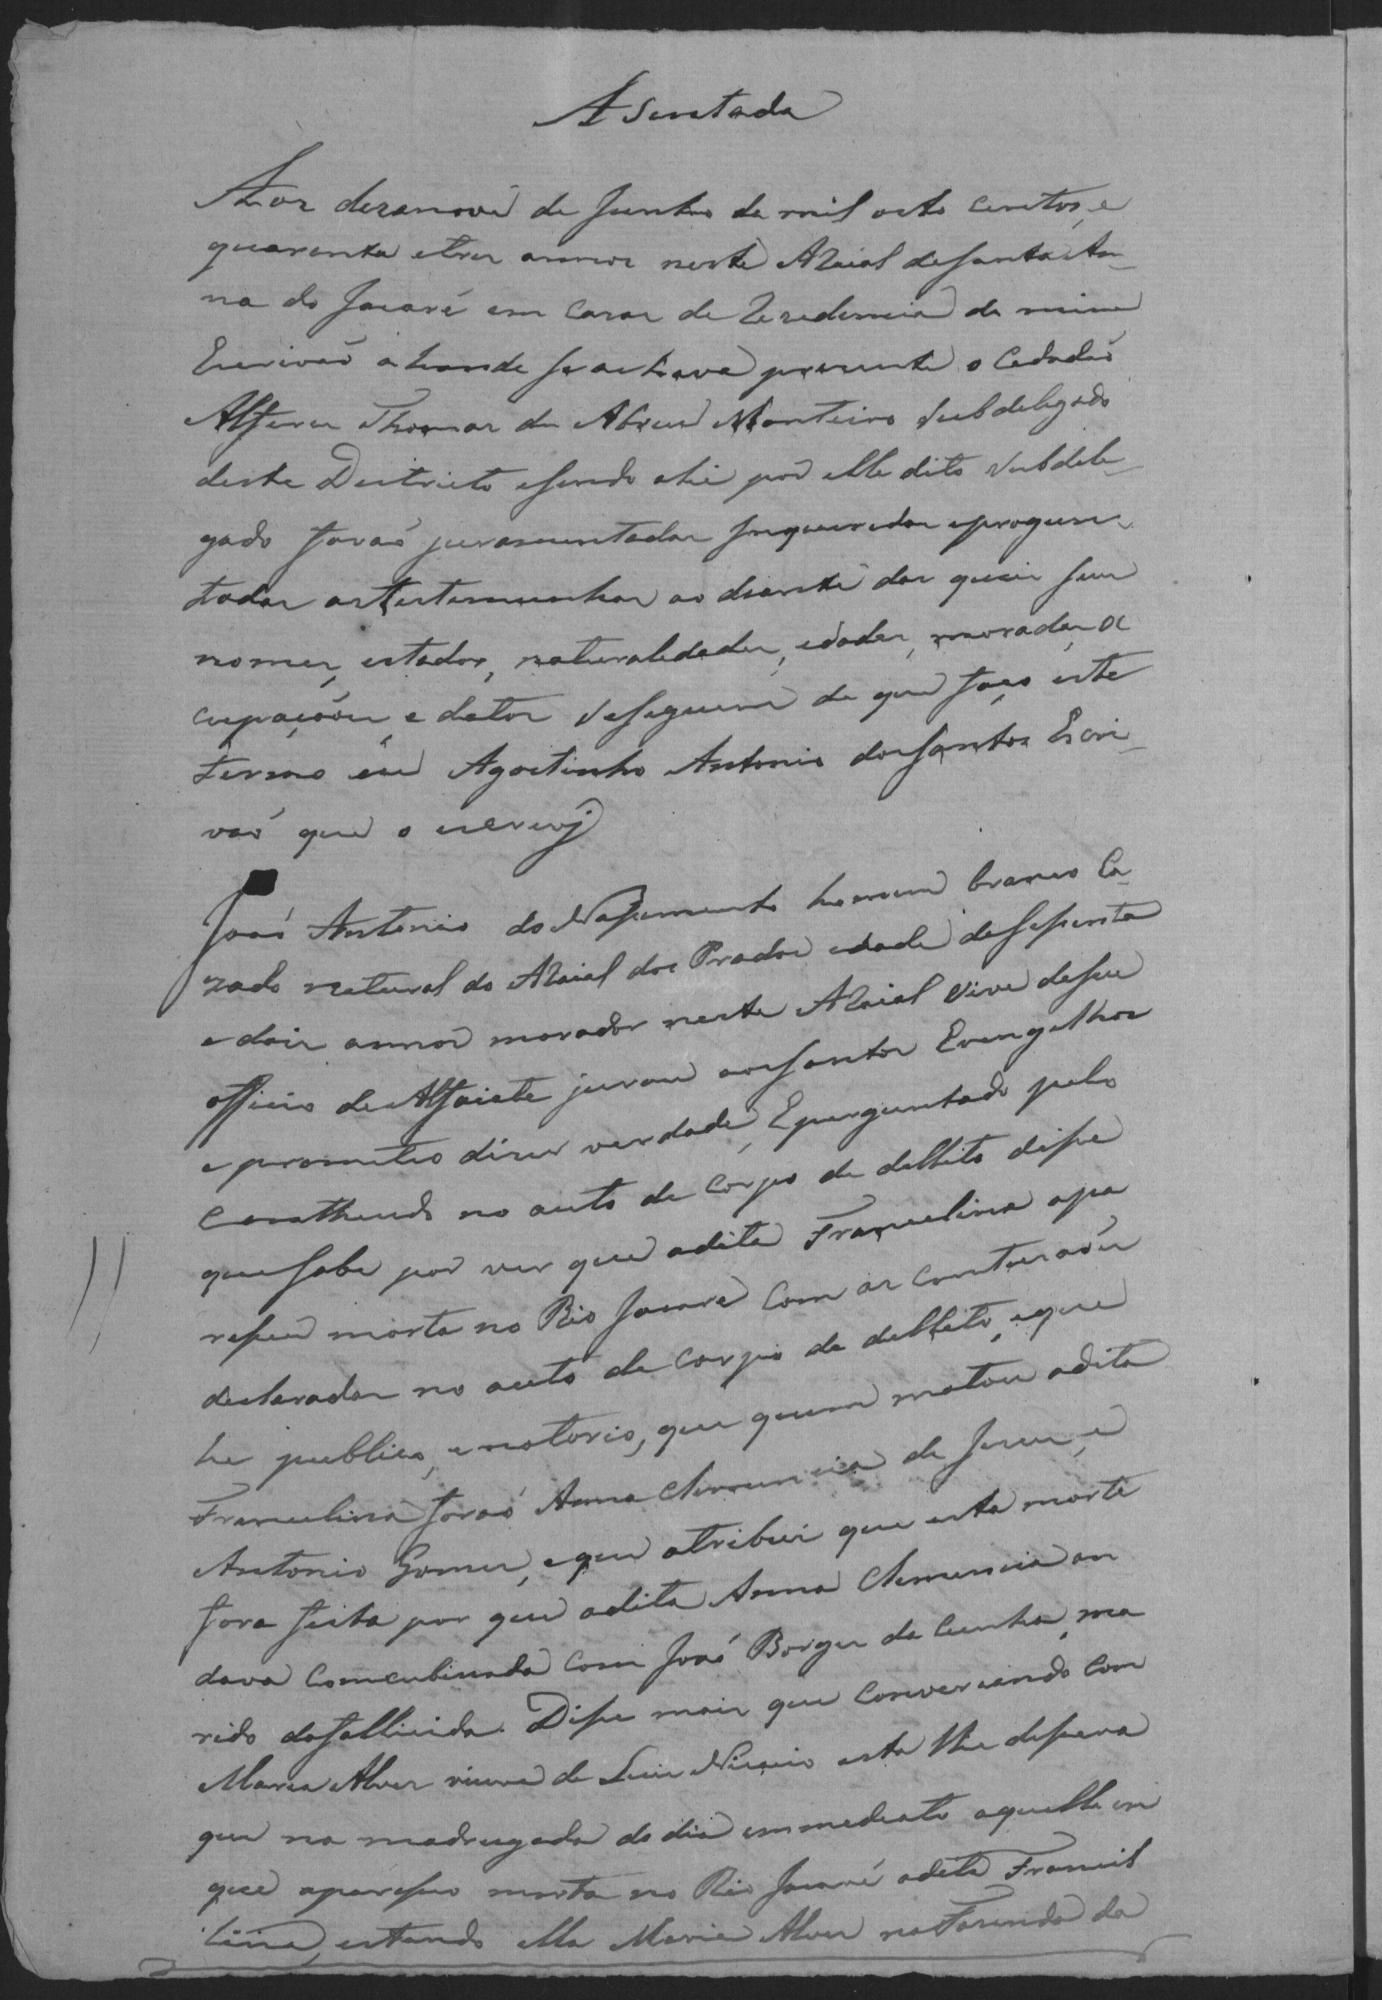 Asentada
Aos desanove de Junho de mil oito centos, e
quarenta e tres annos neste Araial de Santa An-
na do Jacaré em casas de Rezedencia de mim
Escrivaõ ahonde se achava prezente o Cedadaõ
Alferes Thomas de Abreu Monteiro Subdelegado
deste Destricto e sendo ahi por elle dito Subdele-
gado foraõ juramentadas Inqueredas e progun-
tadas as testemunhas ao diante das quais seus
nomes, estados, naturaledades, edades, moradas, o
cupaçoões, e detos se seguem de que faço este
termo eu Agostinho Antonio dos Santos Escri-
vaõ que o escrevj
Joaõ Antonio do Nassimento homem branco Ca-
zado natural do Araial dos Prados edade de sesenta
e dois annos morador neste Araial vive de seu
officio de Alfaiate jurou aos Santos Evangelhos
e prometeo dizer verdade, E perguntado pelo
contheudo no auto de corpo de dellito disse
que sabe por ver que a dita Francelina apa
resseu morta no Rio Jacaré com as contuzoẽs
declaradas no auto de corpo de dellito, e que
he publico, e notorio, que quem matou a dita
Francelina foraõ Anna Clemencia de Jesus, e
Antonio Gomes, e que atribui que esta morte
fora feita por que a dita Anna Clemencia an
dava comcubinada com Joaõ Borges da Cunha, ma
rido da fallicida. Disse mais que converçando com
Maria Alves viuva de Luis Nicacio esta lhe dissera
que na madrugada do dia emmediato aquelle em
que aparesseo morta no Rio Jacaré a dita Francil
lina, estando ella Maria Alves na Fazenda da